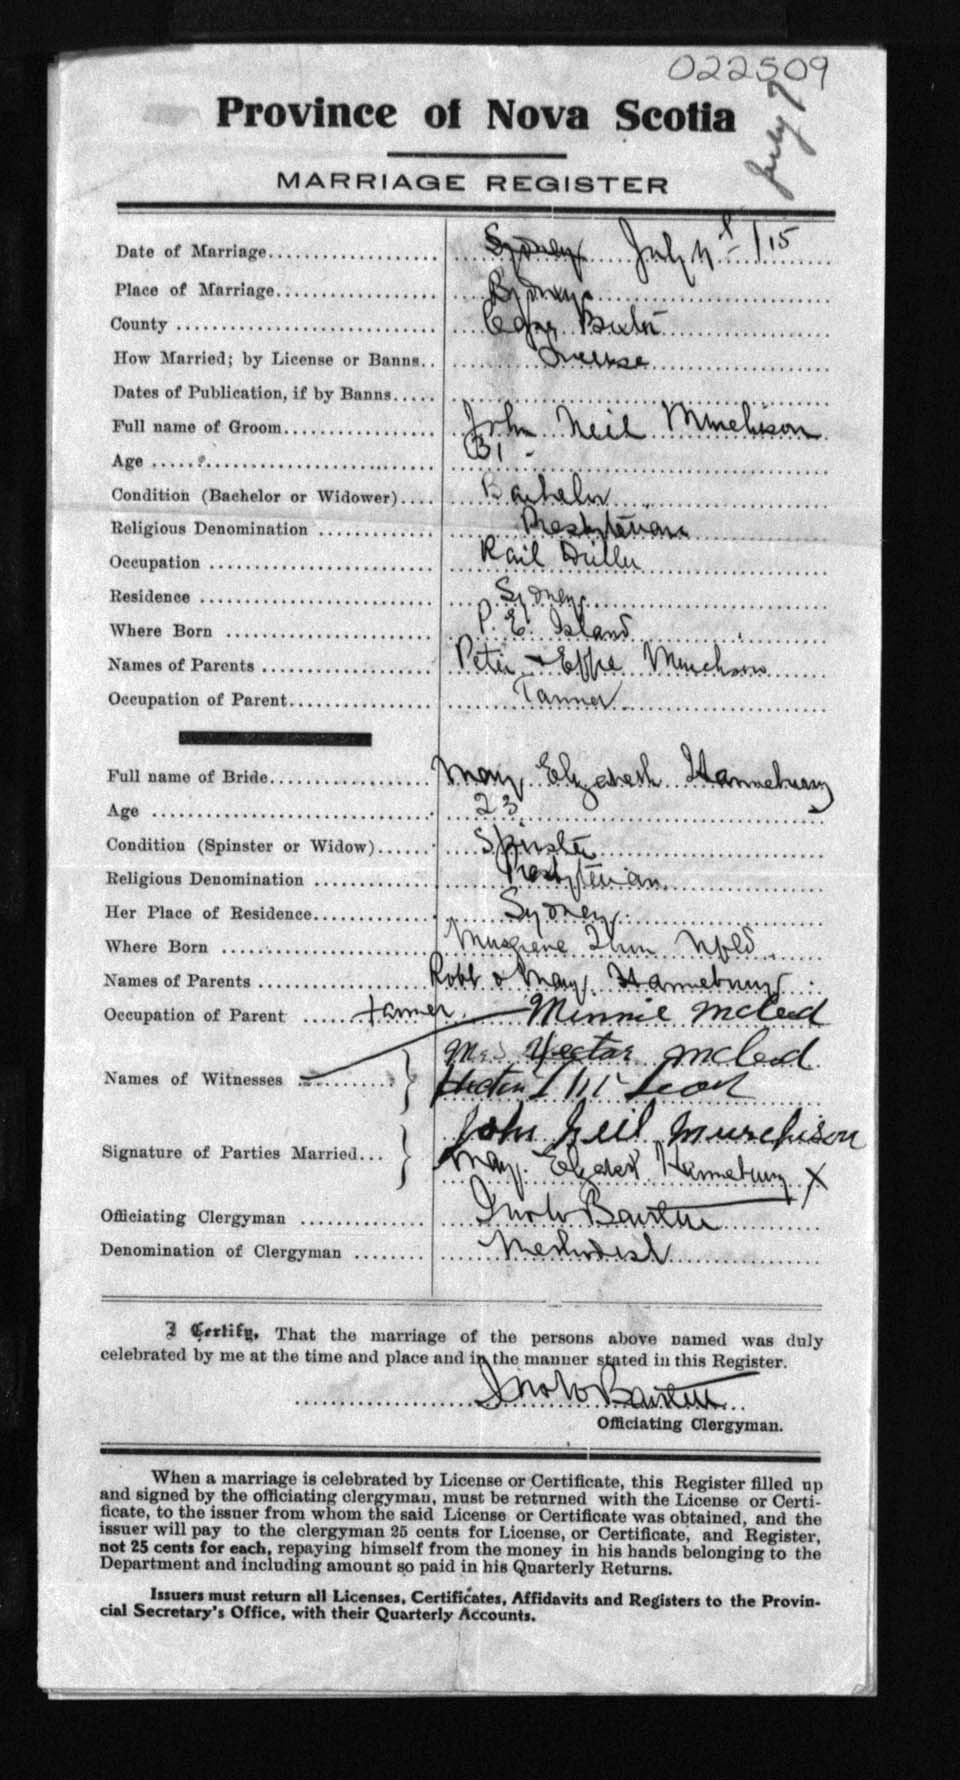 022509
July 7
Province of Nova Scotia
MARRIAGE REGISTER
Date of Marriage Sydney July /15
Place of Marriage Sydney
County Cape Breton
How Married; by License or Banns License
Dates of Publication, if by Banns
Full name of Groom John Neil Murchison
Age 31
Condition (Bachelor or Widower) Bachelor
Religious Denomination Presbyterian
Occupation Rail Driller
Residence Sydney
Where Born P. E. Island
Names of Parents Peter + Effie Murchison
Occupation of Parent
Full name of Bride May Elizabeth Hannebury
Age 23
Condition (Spinster or Widow) Spinster
Religious Denomination Presbyterian
Her Place of Residence Sydney
Where Born Musgrave Nfld
Names of Parents Robt & May Hannebury
Occupation of Parent Minnie McLeod
Mrs Hector McLeod
Names of Witnesses
Hector McLeod
John Neil Murchison
Signature of Parties Married
May Elizabeth Hannebury X
Officiating Clergyman
Denomination of Clergyman Methodist
I Certify, That the marriage of the persons above named was duly
celebrated by me at the time and place and in the manner stated in this Register.
Officiating Clergyman.
When a marriage is celebrated by License or Certificate, this Register filled up
and signed by the officiating clergyman, must be returned with the License or Certi-
ficate, to the issuer from whom the said License or Certificate was obtained, and the
issuer will pay to the clergyman 25 cents for License, or Certificate, and Register,
not 25 cents for each, repaying himself from the money in his hands belonging to the
Department and including amount so paid in his Quarterly Returns.
Issuers must return all Licenses, Certificates, Affidavits and Registers to the Provin-
cial Secretary's Office, with their Quarterly Accounts.